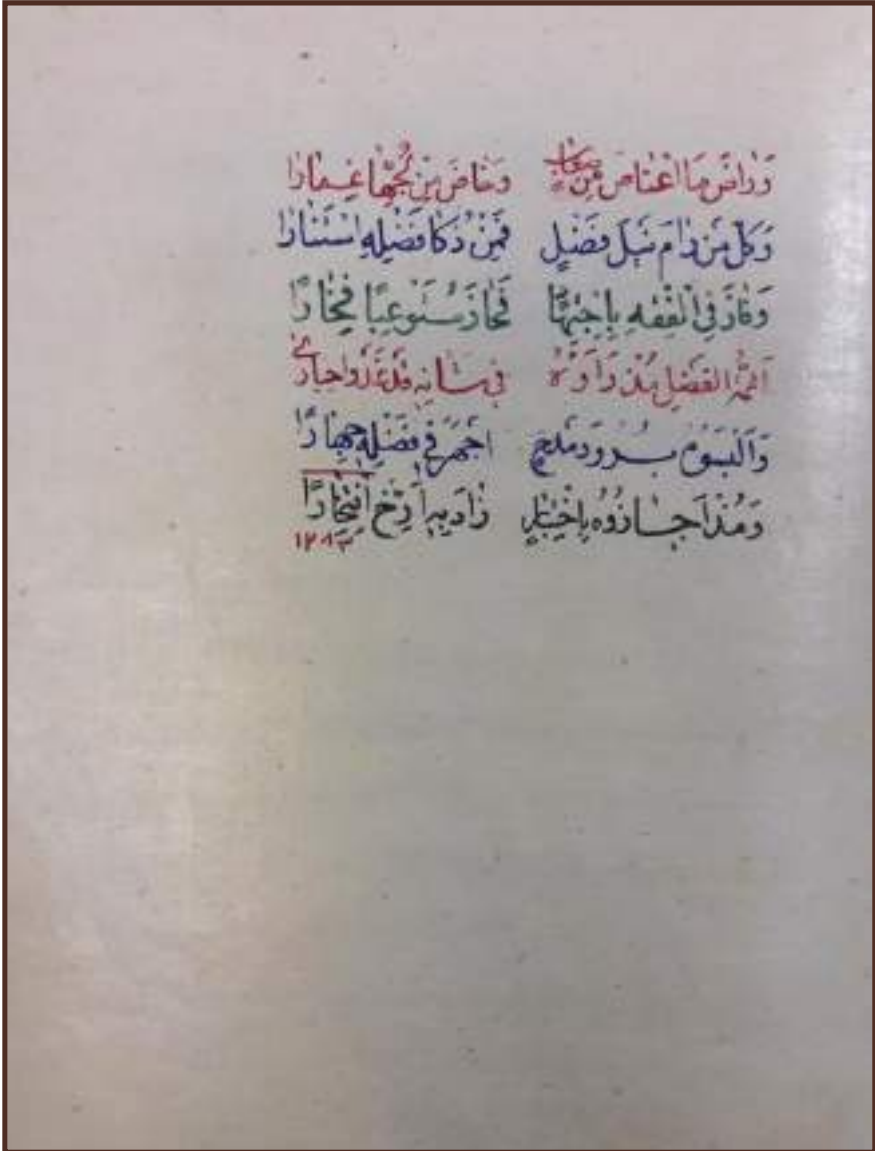 وَرَاضَ مَا اعْتَاصَ مِن صِعَابٍ وَخَاضَ مِنْ لُجِّهَا غِمَارًا
وَكُلُّ مَن رَامَ نَيْلَ فَضْلٍ فَمِنْ ذُكَا فَضْلِهِ اسْتَنَارَا
وَفَازَ فِي الْفِقْهِ بِاجْتِهَادٍ فَحَازَ مُسْتَوْعِبًا فِخَارًا
ائمة الفَضْلِ مُذْ رَاَوْهُ فِي شانِهِ قَدْ غَدَوا حيارى
وَالْيَوْمَ بُرُود مَدْحٍ اجهر فِي فَضْلِهِ جِهَارًا
وَمُذْ اَجَازُوهُ بِاخْتِبَارٍ زَادَ بِهِ اَرِّخ اِفْتِخَارًا
١٢٨٣